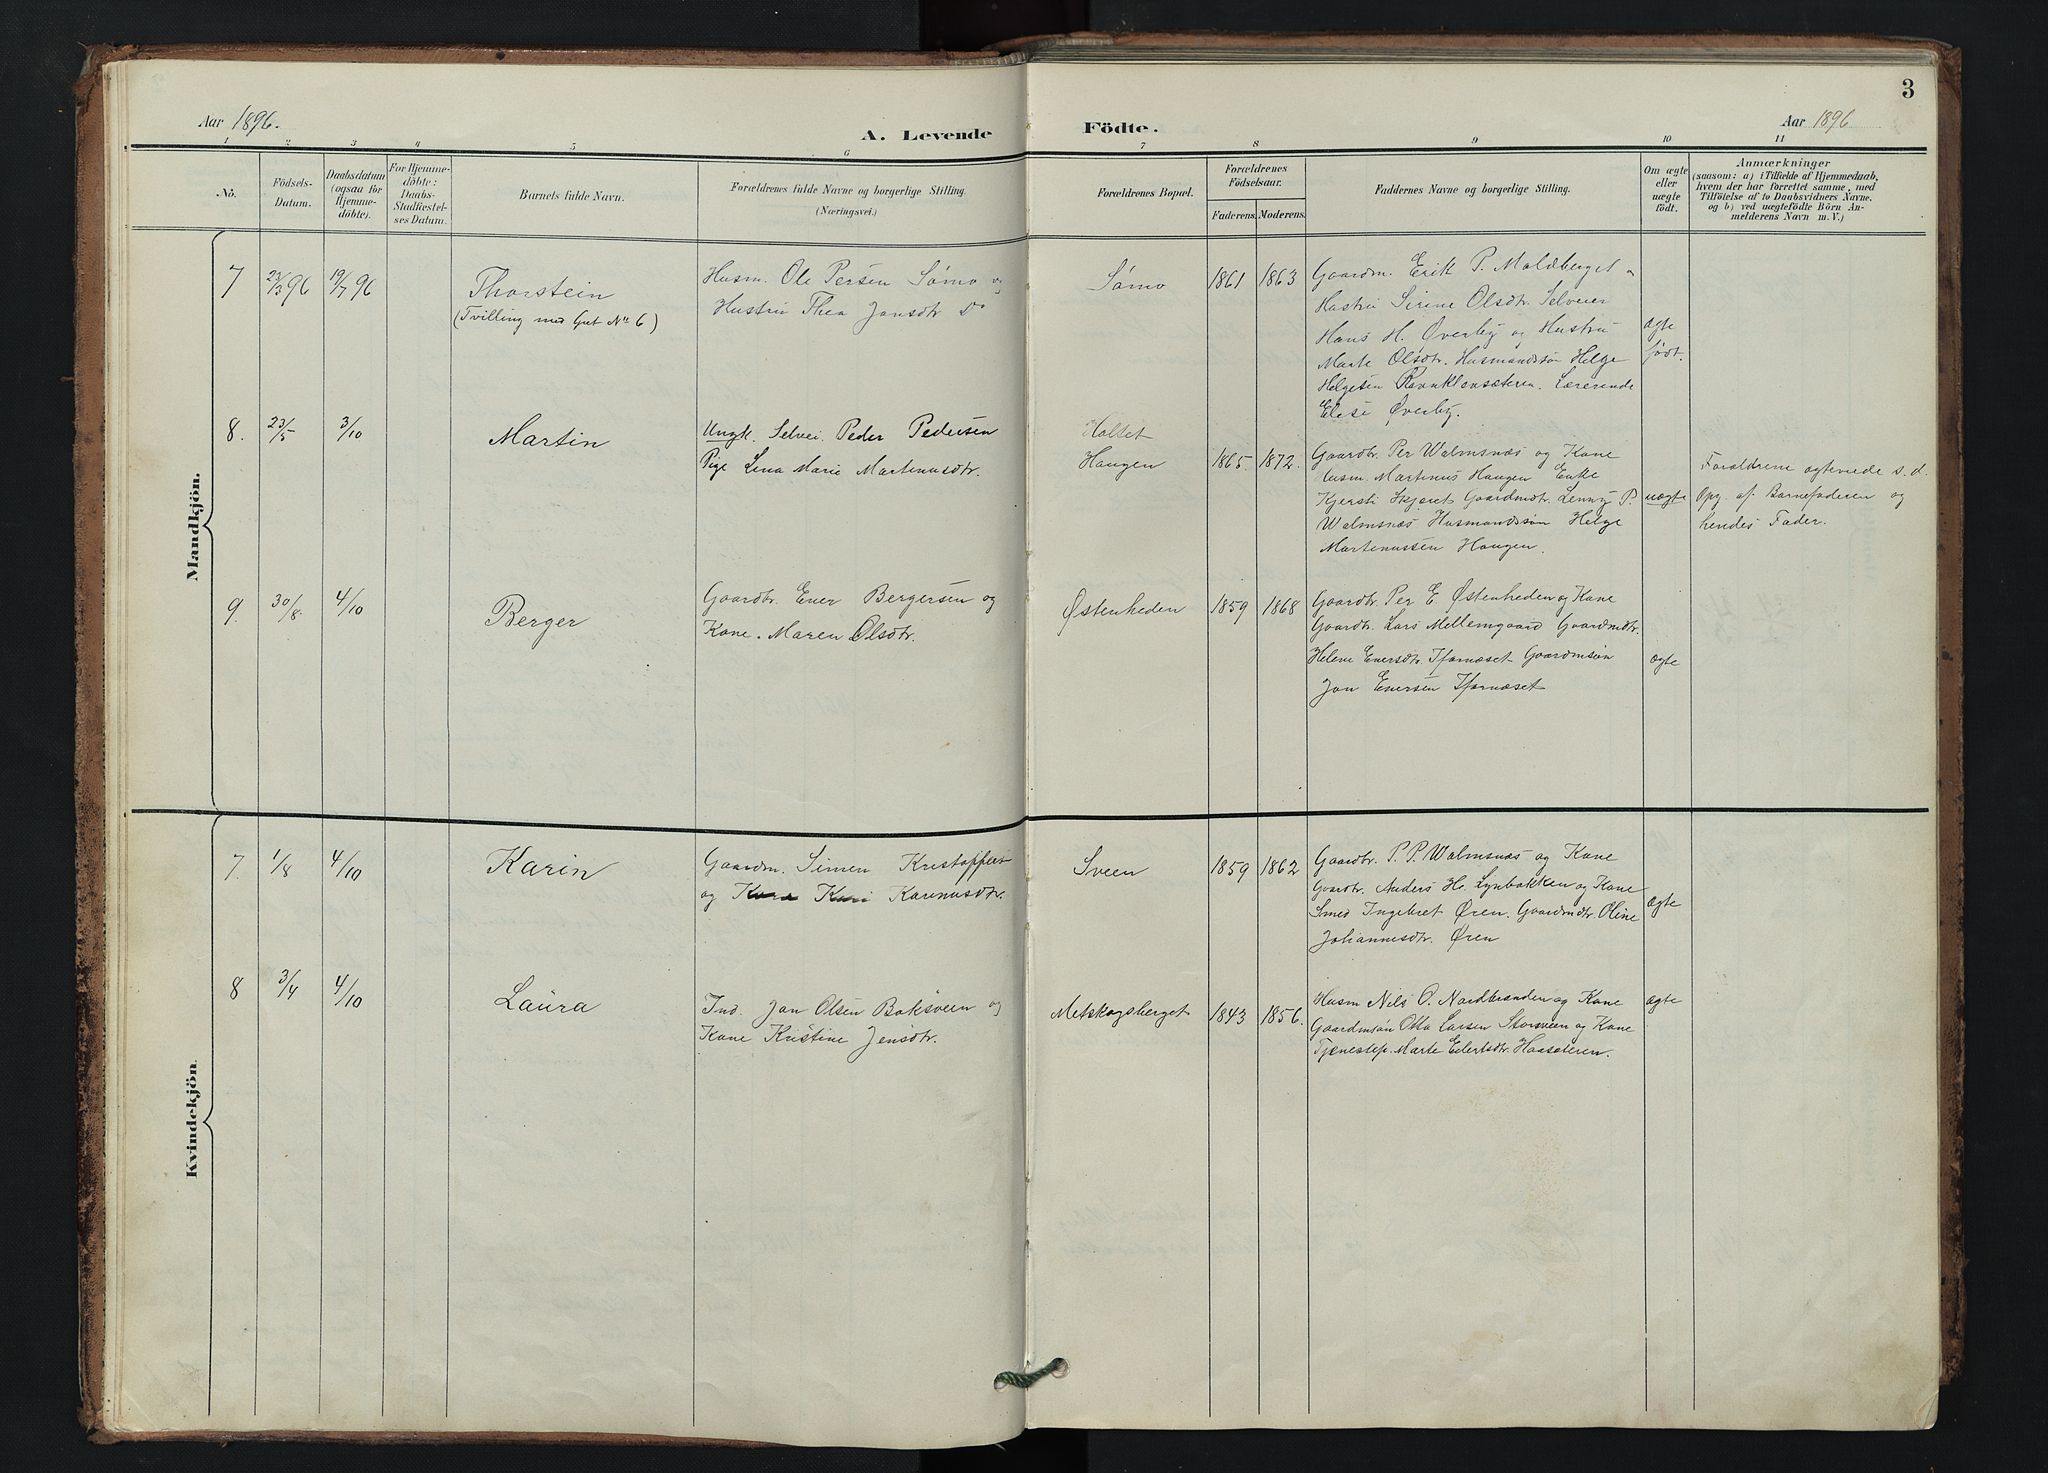 3
Aar 1896.
A. Levende
Födte.
Aar 1896
1 2 3 4 5 6 7 8 9 10 11
No.
Födsels-
Datum.
Daabsdatum
(ogsaa for
Hjemme-
döbte).
For Hjemme-
döbte:
Daabs-
Stadfæstel-
ses Datum.
Barnets fulde Navn.
Forældrenes fulde Navne og borgerlige Stilling.
(Næringsvei.)
Forældrenes Bopæl.
Forældrenes
Födselsaar.
Faderens.
Moderens.
Faddernes Navne og borgerlige Stilling.
Om ægte
eller
uægte
födt.
Anmærkninger
(saasom: a) i Tilfælde af Hjemmedaab,
hvem der har forrettet samme, med
Tilföielse af to Daabsvidners Navne.
og b) ved uægtefödte Börn An-
melderens Navn m. V.)
Mandkjön.
7
23/3 96
19/7 96
Thorstein
(Tvilling med Gut No 6)
Husm. Ole Persen Sømo og
Hustru Thea Jonsdtr Do
Sømo
1861
1863
Gaardm. Erik P. Moldberget
Hustru Sirine Olsdtr. Selveier
Hans H. Øverby og Hustru
Marte Olsdtr. Husmandssøn Helge
Helgesen Lærerinde
Elise Øverby.
ægte
født.
8.
23/5
3/10
Martin
Ungk. Selvei. Peder Pedersen
Pige Lena Marie Martinusdtr.
Holtet
Haugen
1865.
1872.
Gaardbr. Per Walmsnæs og Kone
Husm. Martinus Haugen Enke
Kjersti Skjæret Gaardmdtr. Lenny P.
Walmsnæs Husmandssøn Helge
Martinussen Haugen.
uægte
Forældrene agteviede s. d.
Opg. af Barnefaderen og
hendes Fader.
9.
30/8
4/10
Berger
Gaardbr. Ener Bergersen og
Kone. Maren Olsdtr.
Østenheden
1859
1868
Gaardbr. Per E. Østenheden og Kone
Gaardbr. Lars Mellemgaard Gaardmdtr.
Helene Enersdtr. Ifarnæset Gaardmsøn
Jon Enersen Ifarnæset
ægte
Kvindekjön.
7.
1/8
4/10
Karin
Gaardm. Simen Kristoffers
og Karinusdtr.
Sveen
1859
1862
Gaardbr. P. P. Walmsnæs og Kone
Gaardbr. Anders H. Lynbakken og Kone
Smed Ingebret Øren. Gaardmdtr. Oline
Johannesdtr. Øren
ægte
8
3/4
4/10
Laura
Ind. Jon Olsen Baksveen og
Kone Kristine Jensdtr.
Metskogsberget
1843
1856.
Husm Nils O. Nordbranden og Kone
Gaardmsøn Otto Larsen Storsveen og Kone
Tjenestep. Marte Eilertsdtr. Haaseteren.
ægte